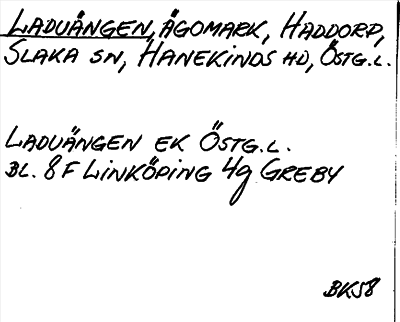 LADUÄNGEN, ÄGOMARK, HADDORP,
SLAKA SN, HANEKINDS HD, ÖSTG.L.
LADUÄNGEN EK ÖSTG.L.
BL. 8F LINKÖPING 4g GREBY
BK58